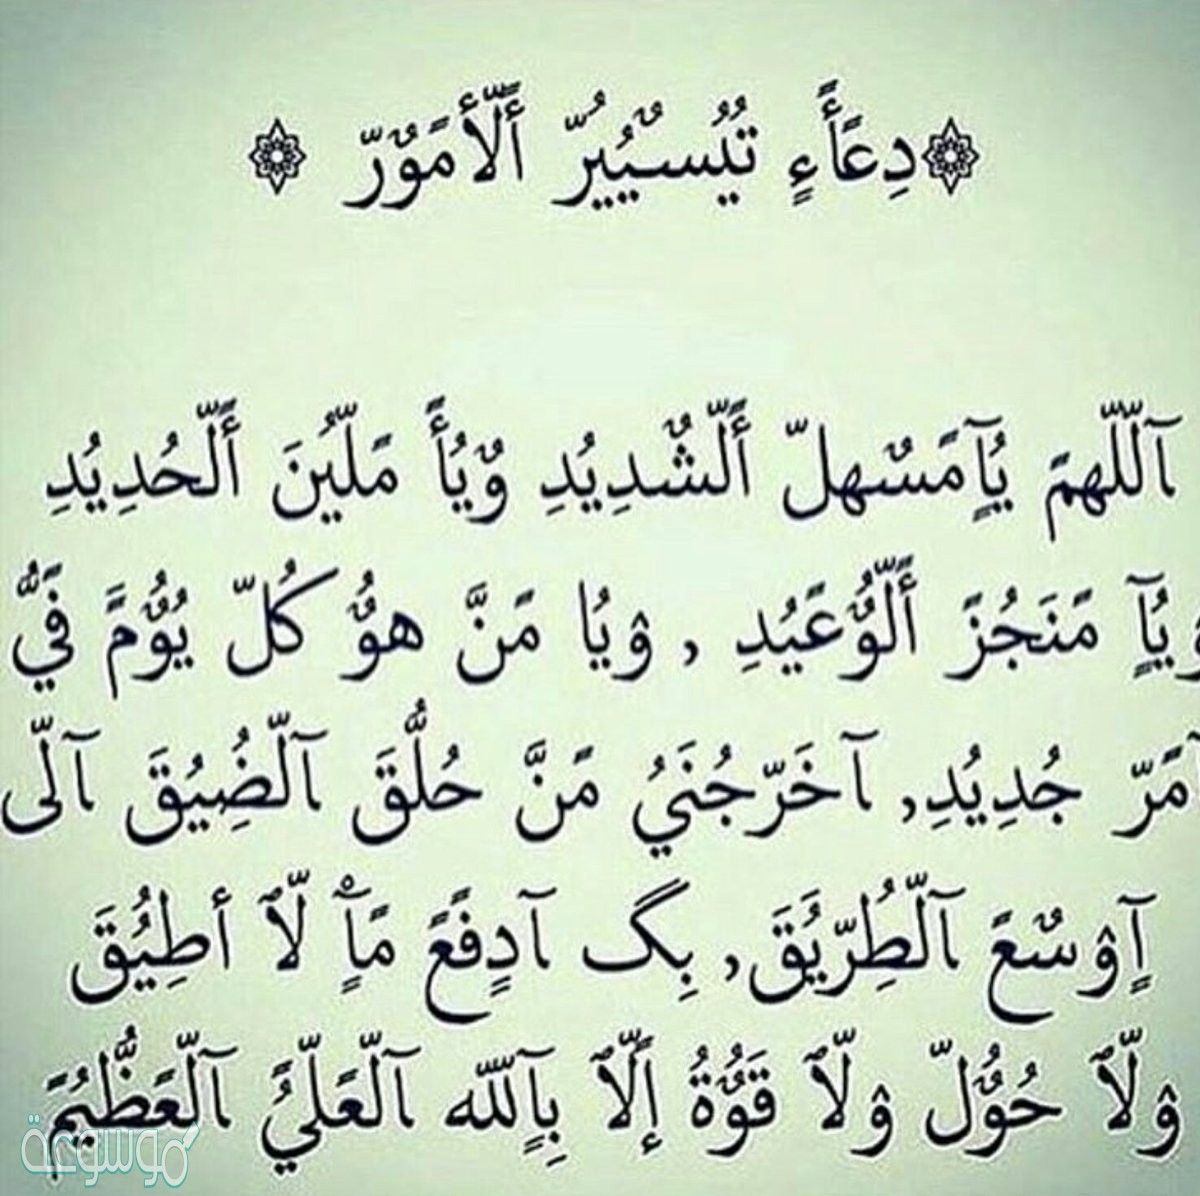 دعاء تيسير الأمور
اللهم يا مسهل الشديد ويا ملين الحديد
ويا منجز الوعيد , ويا من هو كل يوم في
أمر جديد, اخرجني من حلق الضيق الى
اوسع الطريق, بك ادفع ما لا أطيق
ولا حول ولا قوة إلا بالله العلي العظيم
موسوعة